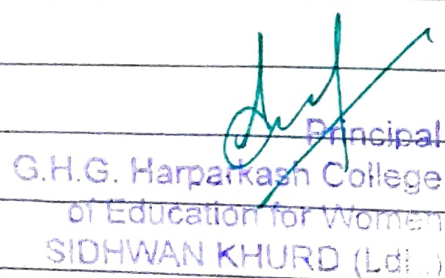 Principal
G.H.G. Harparkash College
of Education for Women
SIDHWAN KHURD (Ldh.)